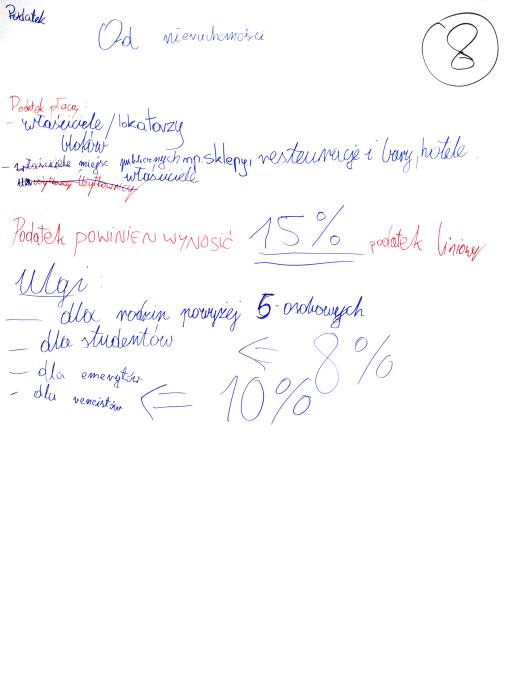 Podatek
Od nieruchomości
8
Podatek płacą:
- właściciele/lokatorzy
bloków
- właściciele miejsc publicznych np. sklepy, restauracje i bary, hotele.
użytkownicy właściciele
Podatek POWINIEN WYNOSIĆ 15% podatek liniowy
Ulgi:
- dla rodzin powyżej 5-osobowych
- dla studentów <= 8%
- dla emerytów
- dla rencistów <= 10%